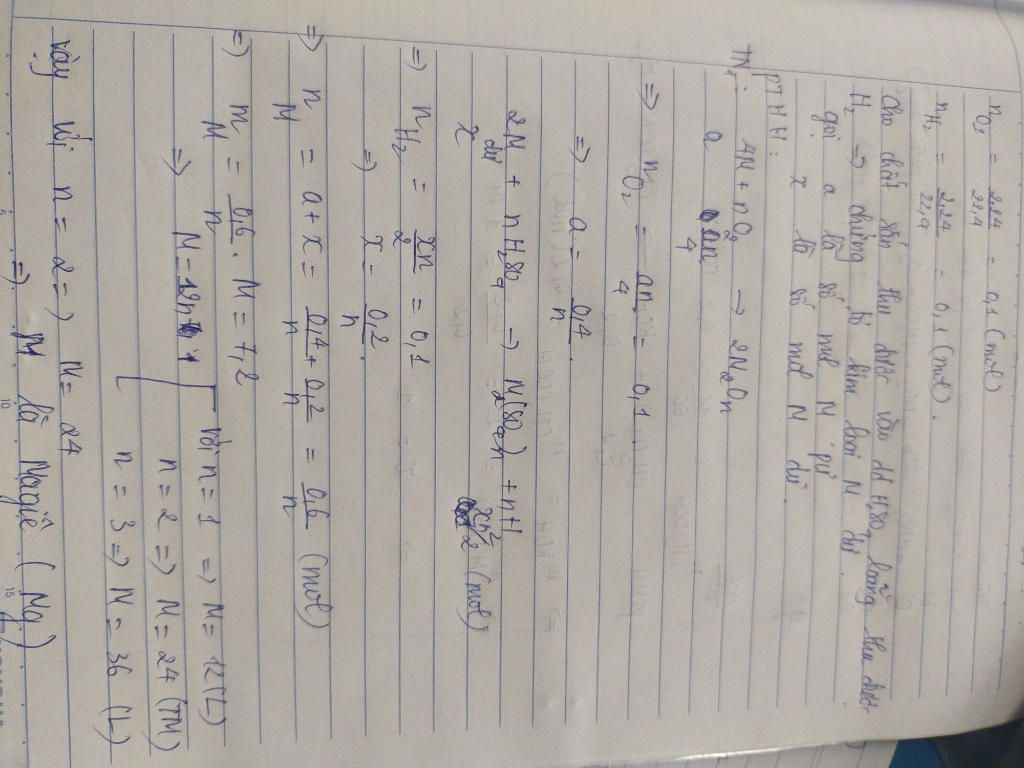 nO2 = 2,24/22,4 = 0,1 (mol)
nH2 = 2,24/22,4 = 0,1 (mol).
Cho chất rắn thu được vào dd H2SO4 loãng thu được
H2 => chứng tỏ kim loại M dư.
gọi a là số mol M pứ
x là số mol M dư.
PTHH:
TN1: 4M + nO2 -> 2M2On
a an/4
=> nO2 = an/4 = 0,1.
=> a = 0,4/n.
2M dư + nH2SO4 -> M2(SO4)n + nH2
x xn/2 (mol)
=> nH2 = xn/2 = 0,1
=> x = 0,2/n.
=> nM = a + x = 0,4/n + 0,2/n = 0,6/n (mol)
=> mM = 0,6/n . M = 7,2
=> M = 12n
Với n = 1 => M = 12 (L)
n = 2 => M = 24 (TM)
n = 3 => M = 36 (L)
Vậy với n = 2 => M = 24
=> M là Magiê (Mg)
5 10 15